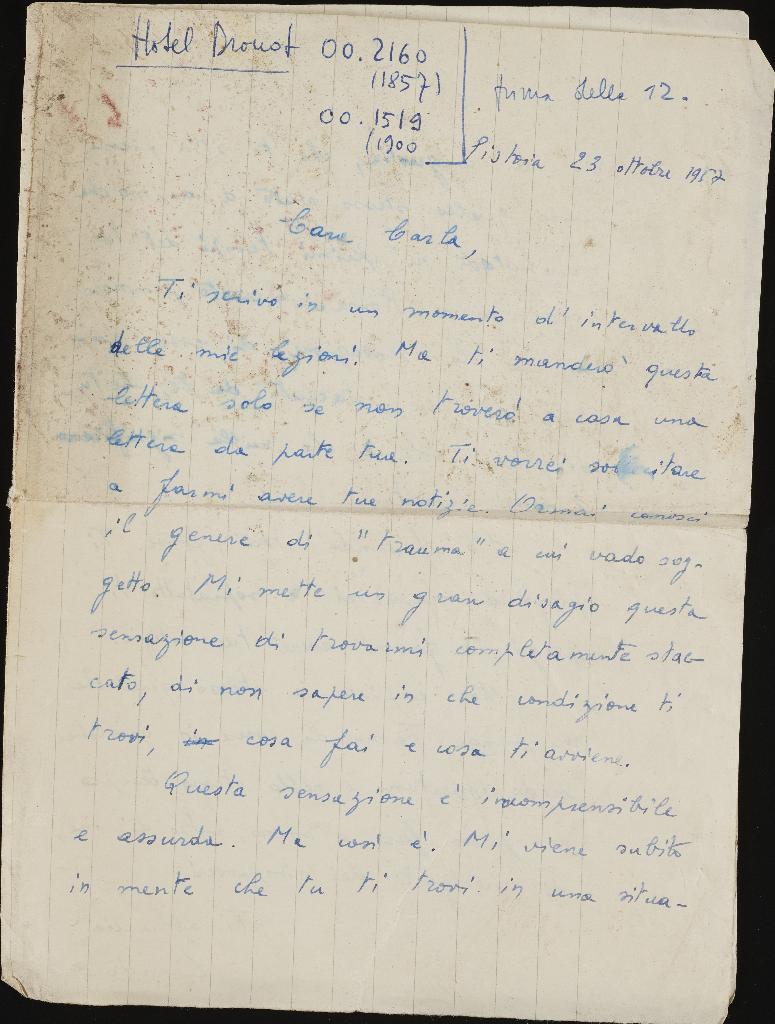 Hotel Drouot 00.2160
(1857)
00.1519
(1900
prima delle 12.
Pistoia 23 ottobre 1957
Cara Carla,
Ti scrivo in un momento d'intervallo
delle mie lezioni. Ma ti manderò questa
lettera solo se non troverò a casa una
lettera da parte tua. Ti vorrei sollecitare
a farmi avere tue notizie. Ormai conosci
il genere di "trauma" a cui vado sog-
getto. Mi mette un gran disagio questa
sensazione di trovarmi completamente stac-
cato, di non sapere in che condizione ti
trovi, in cosa fai e cosa ti avviene.
Questa sensazione è incomprensibile
e assurda. Ma così è. Mi viene subito
in mente che tu ti trovi in una situa-